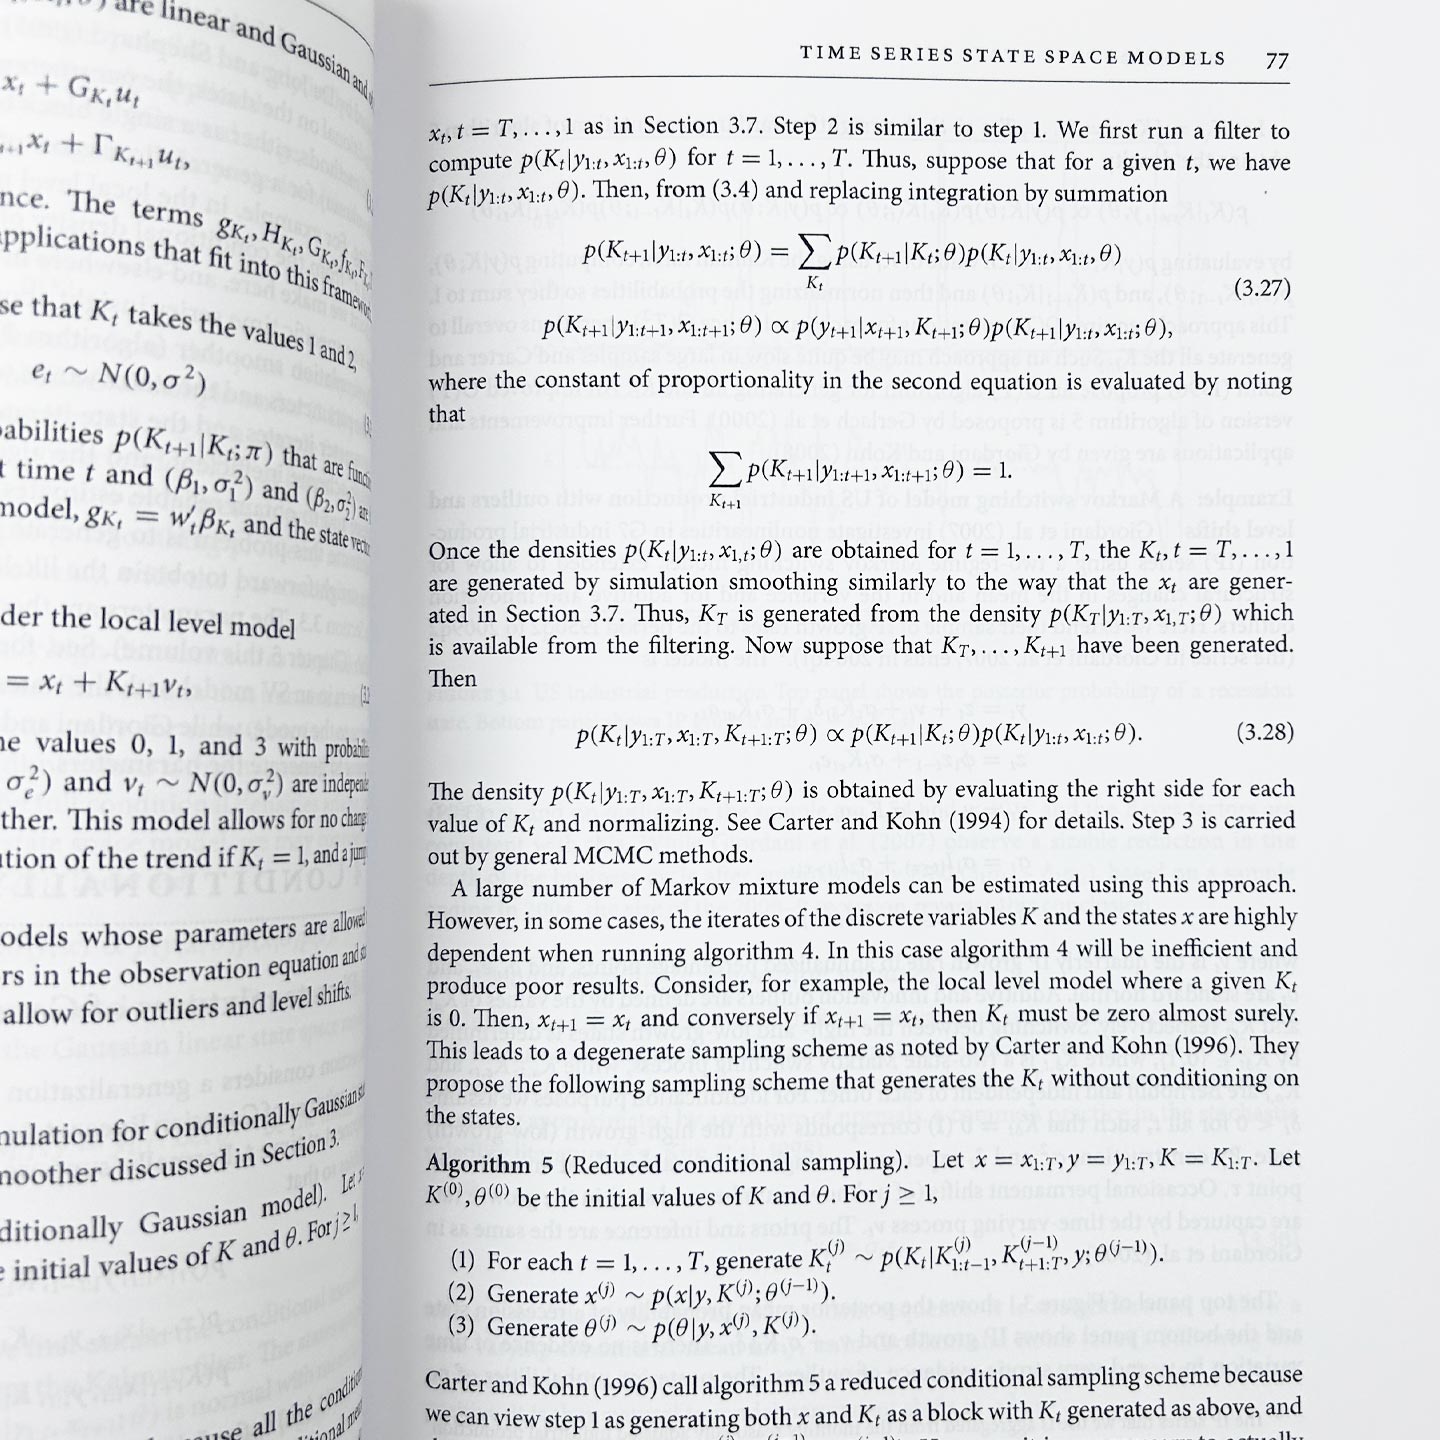 are linear and Gaussian and
x_t + G_{K_t} u_t
x_t + Γ_{K_{t+1}} u_t,
nce. The terms g_{K_t}, H_{K_t}, G_{K_t}, f_{K_t},
applications that fit into this framework
se that K_t takes the values 1 and 2,
e_t ∼ N(0, σ^2)
abilities p(K_{t+1}|K_t; π) that are
t time t and (β_1, σ_1^2) and (β_2, σ_2^2) are
model, g_{K_t} = w_t′β_{K_t} and the state
der the local level model
= x_t + K_{t+1}ν_t,
he values 0, 1, and 3 with
σ_e^2) and ν_t ∼ N(0, σ_ν^2) are
ther. This model allows for no
tion of the trend if K_t = 1, and a jump
odels whose parameters are allowed
rs in the observation equation and
allow for outliers and level shifts.
mulation for conditionally Gaussian
moother discussed in Section 3.
ditionally Gaussian model). Let
e initial values of K and θ. For j ≥ 1,
all the
TIME SERIES STATE SPACE MODELS 77
x_t, t = T, . . . , 1 as in Section 3.7. Step 2 is similar to step 1. We first run a filter to
compute p(K_t|y_{1:t}, x_{1:t}, θ) for t = 1, . . . , T. Thus, suppose that for a given t, we have
p(K_t|y_{1:t}, x_{1:t}, θ). Then, from (3.4) and replacing integration by summation
p(K_{t+1}|y_{1:t}, x_{1:t}; θ) = ∑_{K_t} p(K_{t+1}|K_t; θ)p(K_t|y_{1:t}, x_{1:t}, θ)
(3.27)
p(K_{t+1}|y_{1:t+1}, x_{1:t+1}; θ) ∝ p(y_{t+1}|x_{t+1}, K_{t+1}; θ)p(K_{t+1}|y_{1:t}, x_{1:t}; θ),
where the constant of proportionality in the second equation is evaluated by noting
that
∑_{K_{t+1}} p(K_{t+1}|y_{1:t+1}, x_{1:t+1}; θ) = 1.
Once the densities p(K_t|y_{1:t}, x_{1,t}; θ) are obtained for t = 1, . . . , T, the K_t, t = T, . . . , 1
are generated by simulation smoothing similarly to the way that the x_t are gener-
ated in Section 3.7. Thus, K_T is generated from the density p(K_T|y_{1:T}, x_{1,T}; θ) which
is available from the filtering. Now suppose that K_T, . . . , K_{t+1} have been generated.
Then
p(K_t|y_{1:T}, x_{1:T}, K_{t+1:T}; θ) ∝ p(K_{t+1}|K_t; θ)p(K_t|y_{1:t}, x_{1:t}; θ). (3.28)
The density p(K_t|y_{1:T}, x_{1:T}, K_{t+1:T}; θ) is obtained by evaluating the right side for each
value of K_t and normalizing. See Carter and Kohn (1994) for details. Step 3 is carried
out by general MCMC methods.
A large number of Markov mixture models can be estimated using this approach.
However, in some cases, the iterates of the discrete variables K and the states x are highly
dependent when running algorithm 4. In this case algorithm 4 will be inefficient and
produce poor results. Consider, for example, the local level model where a given K_t
is 0. Then, x_{t+1} = x_t and conversely if x_{t+1} = x_t, then K_t must be zero almost surely.
This leads to a degenerate sampling scheme as noted by Carter and Kohn (1996). They
propose the following sampling scheme that generates the K_t without conditioning on
the states.
Algorithm 5 (Reduced conditional sampling). Let x = x_{1:T}, y = y_{1:T}, K = K_{1:T}. Let
K^{(0)}, θ^{(0)} be the initial values of K and θ. For j ≥ 1,
(1) For each t = 1, . . . , T, generate K_t^{(j)} ∼ p(K_t|K_{1:t−1}^{(j)}, K_{t+1:T}^{(j−1)}, y; θ^{(j−1)}).
(2) Generate x^{(j)} ∼ p(x|y, K^{(j)}; θ^{(j−1)}).
(3) Generate θ^{(j)} ∼ p(θ|y, x^{(j)}, K^{(j)}).
Carter and Kohn (1996) call algorithm 5 a reduced conditional sampling scheme because
we can view step 1 as generating both x and K_t as a block with K_t generated as above, and